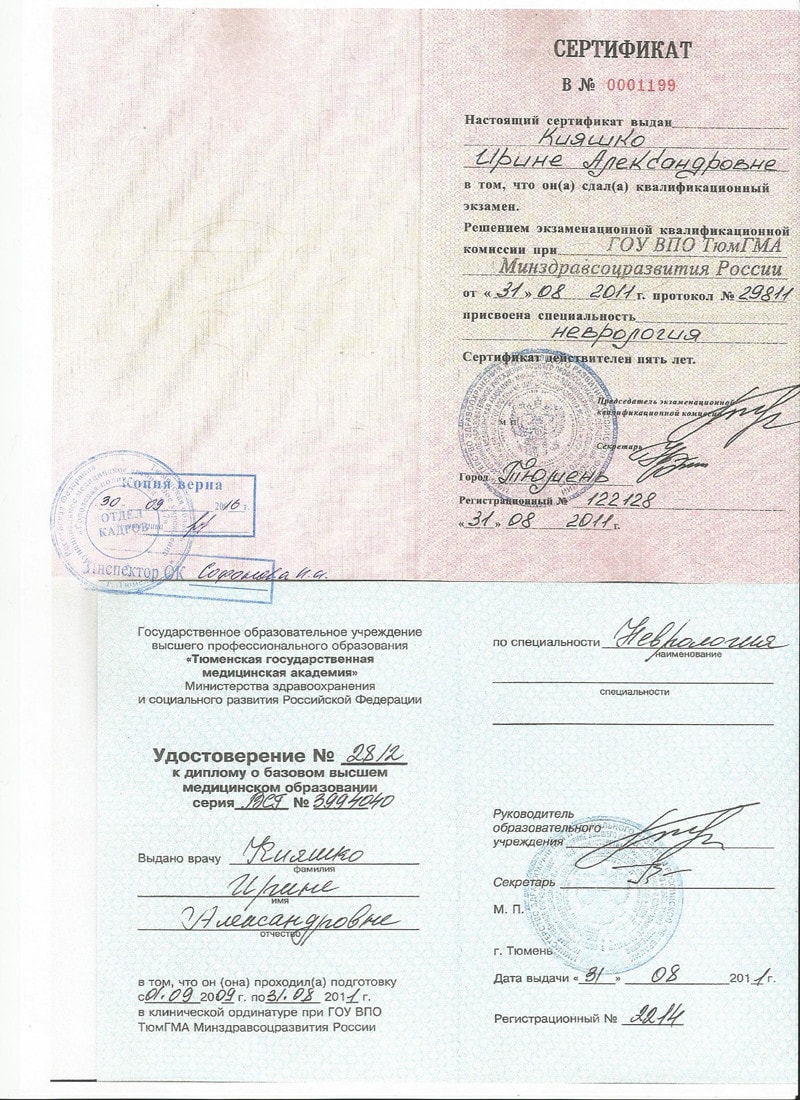 СЕРТИФИКАТ
В № 0001199
Настоящий сертификат выдан
Кияшко
Ирине Александровне
в том, что он(а) сдал(а) квалификационный
экзамен.
Решением экзаменационной квалификационной
комиссии при ГОУ ВПО ТюмГМА
Минздравсоцразвития России
от «31» 08 2011 г. протокол № 29811
присвоена специальность
неврология
Сертификат действителен пять лет.
Председатель экзаменационной
квалификационной комиссии
М П
Секретарь
Город Тюмень
Регистрационный № 122128
«31» 08 2011 г.
Копия верна
30 09 2016 г.
ОТДЕЛ
КАДРОВ
Инспектор ОК
Государственное образовательное учреждение
высшего профессионального образования
«Тюменская государственная
медицинская академия»
Министерства здравоохранения
и социального развития Российской Федерации
Удостоверение № 2812
к диплому о базовом высшем
медицинском образовании
серия ВСГ № 3994040
Выдано врачу Кияшко
фамилия
Ирине
имя
Александровне
отчество
в том, что он (она) проходил(а) подготовку
с 01.09 2009 г. по 31.08 2011 г.
в клинической ординатуре при ГОУ ВПО
ТюмГМА Минздравсоцразвития России
по специальности Неврология
наименование
специальности
Руководитель
образовательного
учреждения
Секретарь
М. П.
г. Тюмень
Дата выдачи «31» 08 2011 г.
Регистрационный № 2214